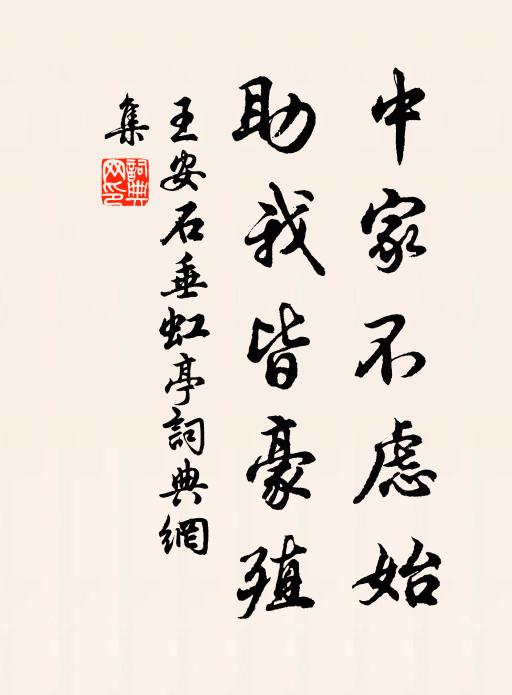 中家不慮始
助我皆豪殖
王安石垂虹亭詞典網
集
詞典網印